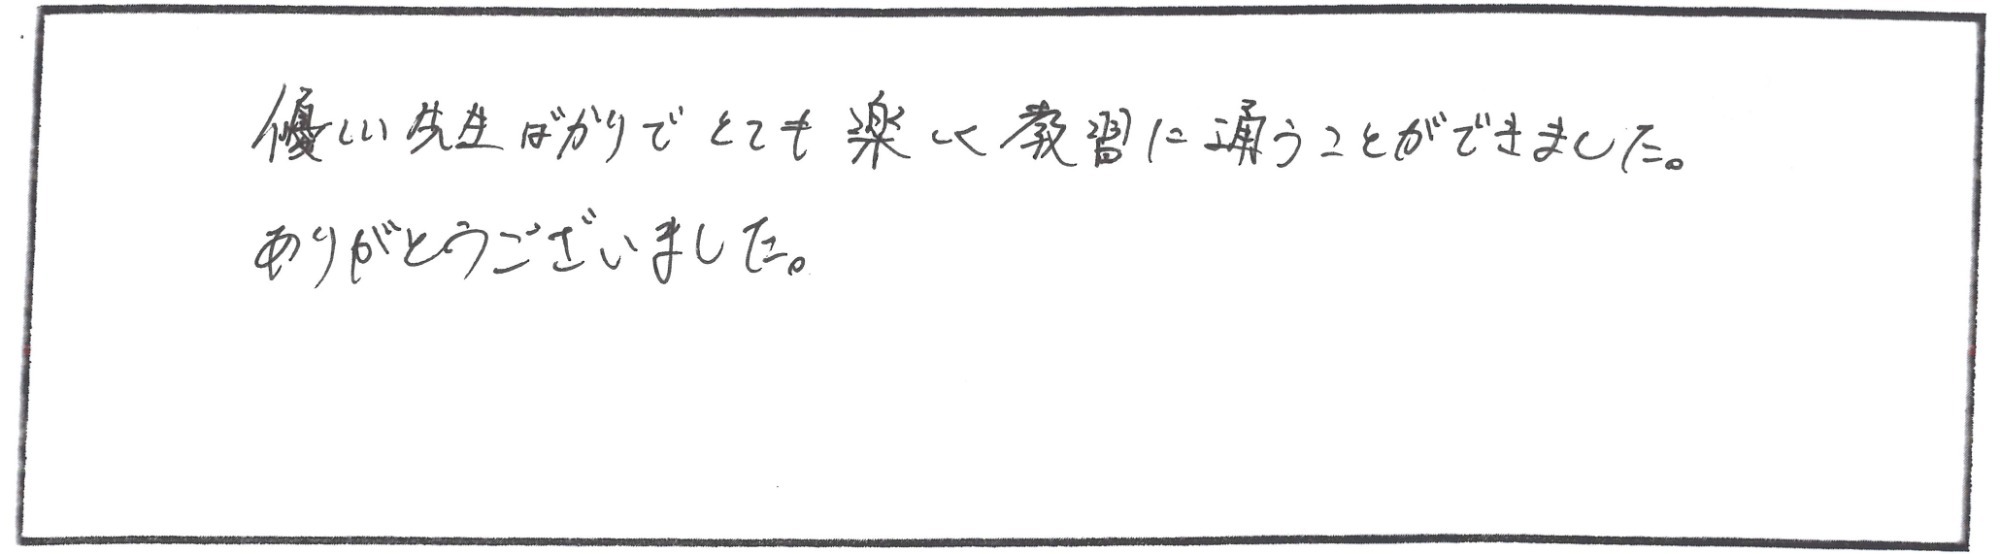 優しい先生ばかりでとても楽しく教習に通うことができました。
ありがとうございました。